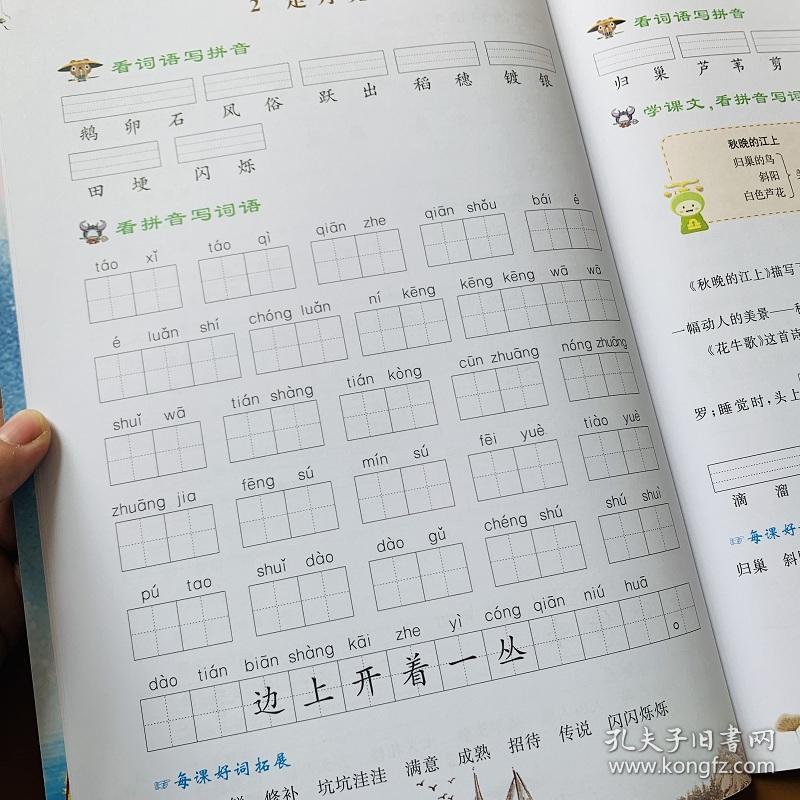 2 走月
看词语写拼音
鹅 卵 石 风 俗 跃 出 稻 穗 镀 银
田 埂 闪 烁
看拼音写词语
táo xǐ táo qì qiān zhe qiān shǒu bái é
é luǎn shí chóng luǎn ní kēng kēng kēng wā wā
shuǐ wā tián shàng tián kòng cūn zhuāng nóng zhuāng
zhuāng jia fēng sú mín sú fēi yuè tiào yuè
pú tao shuǐ dào dào gǔ chéng shú shú shuì
dào tián biān shàng kāi zhe yì cóng qiān niú huā
边上开着一丛 。
每课好词拓展
修补 坑坑洼洼 满意 成熟 招待 传说 闪闪烁烁
看词语写拼音
归 巢 芦 苇 剪
学课文,看拼音写词
秋晚的江上
归巢的鸟
斜阳
白色芦花
《秋晚的江上》描写了
一幅动人的美景——
《花牛歌》这首诗
罗;睡觉时,头上
滴 溜
每课好
归巢 斜
孔夫子旧书网
www.kongfz.com